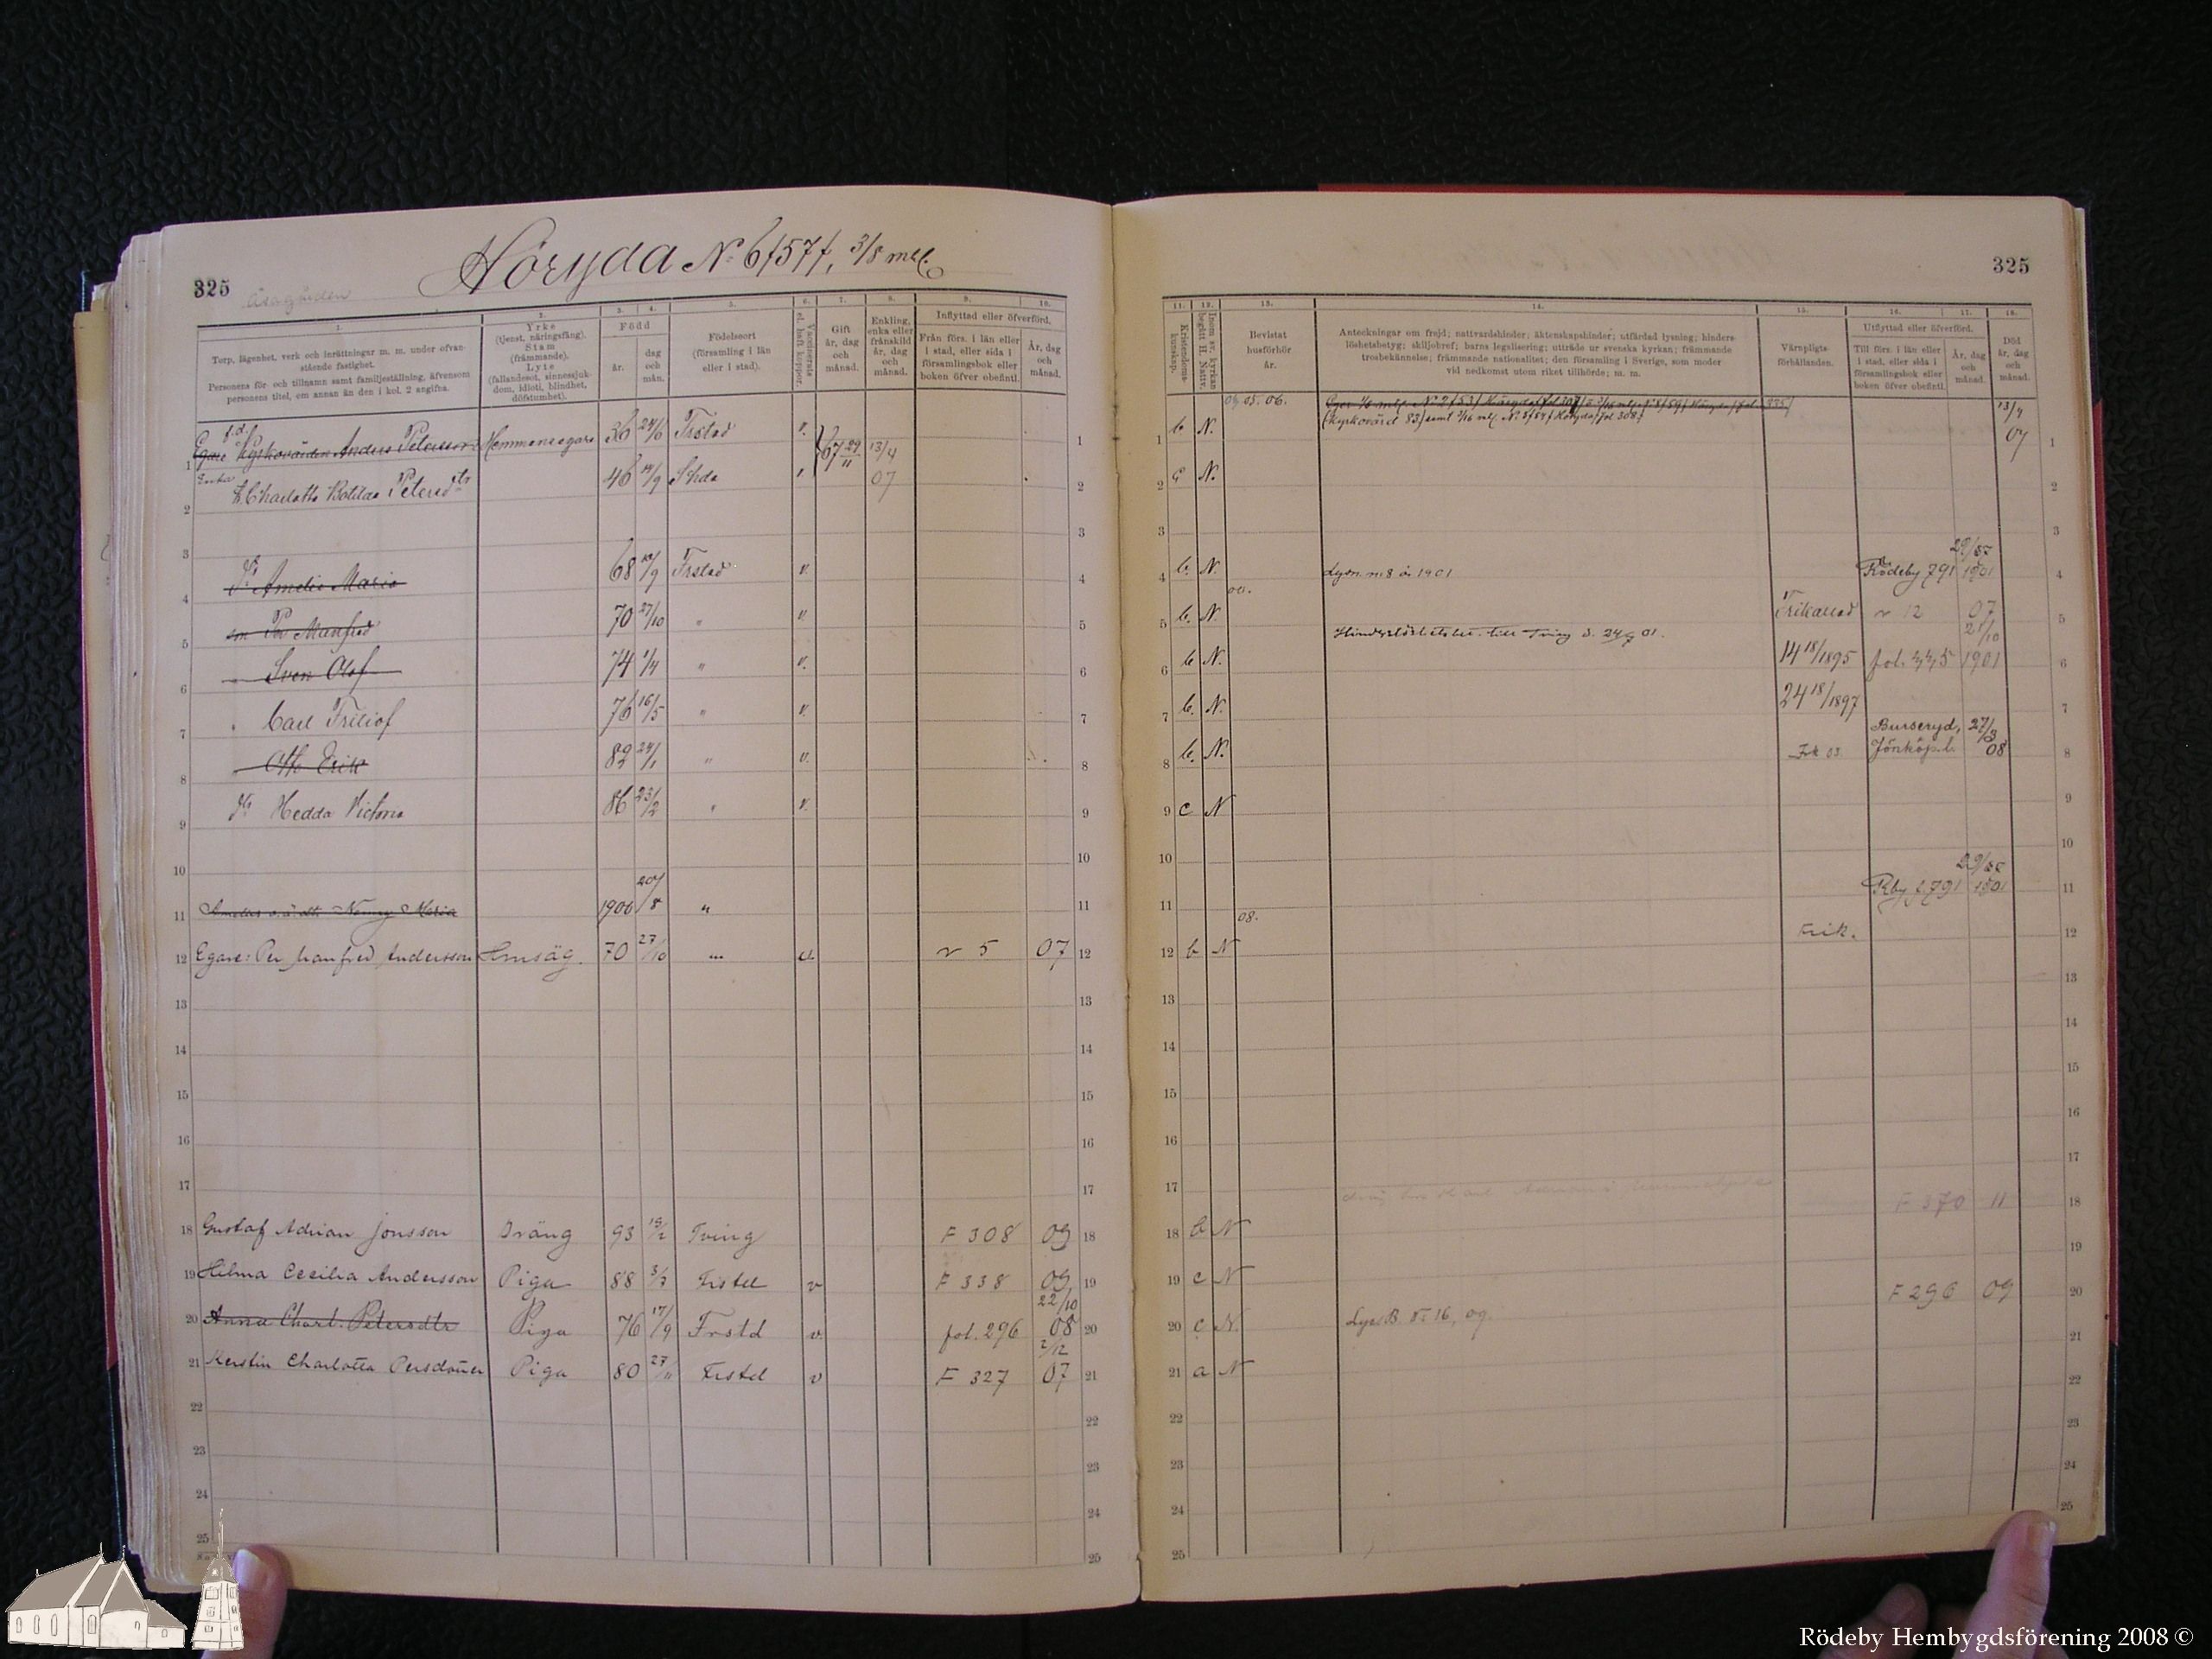 325
Höryda No 6 /57/, 3/8 mtl.
325
1.
Torp, lägenhet, verk och inrättningar m. m. under ofvanstående fastighet.
Personens för- och tillnamn samt familjeställning, äfvensom personens titel, om annan än den i kol. 2 angifna.
2.
Yrke
(tjenst, näringsfång).
Stam
(främmande).
Lyte
(fallandesot, sinnessjukdom, idioti, blindhet, döfstumhet).
3. 4.
Född
år.
dag och mån.
5.
Födelseort
(församling i län eller i stad).
6.
Vaccinerats el. haft koppor.
7.
Gift år, dag och månad.
8.
Enkling, enka eller frånskild år, dag och månad.
9. 10.
Inflyttad eller öfverförd.
Från förs. i län eller i stad, eller sida i församlingsbok eller boken öfver obefintl.
År, dag och månad.
11.
Kristendomskunskap.
12.
Inom sv. kyrkan begått H. Nattv.
13.
Bevistat husförhör år.
14.
Anteckningar om frejd; nattvardshinder; äktenskapshinder; utfärdad lysning; hinderslöshetsbetyg; skiljobref; barns legalisering; utträde ur svenska kyrkan; främmande trosbekännelse; främmande nationalitet; den församling i Sverige, som moder vid nedkomst utom riket tillhörde; m. m.
15.
Värnpligtsförhållanden.
16. 17.
Utflyttad eller öfverförd.
Till förs. i län eller i stad, eller sida i församlingsbok eller boken öfver obefintl.
År, dag och månad.
18.
Död år, dag och månad.
f.d.
1 Egare Kyrkovärden Anders Petersson Hemmansegare 36 24/6 Frstad v. 67 29/11 13/4 07 1
Enka
2 H. Charlotta Botilda Petersdtr 46 14/9 2
3 3
4 Dr Amelie Maria 68 Frstad v. 4
5 son Per Manfred 70 27/10 " v. 5
6 " Sven Olof 74 1/4 " v. 6
7 " Carl Fritiof 76 16/5 " v. 7
8 Otto Erik 82 24/1 " v. 8
9 Dr Hedda Victoria 86 23/2 " v. 9
10 10
11 Nanny Maria 1906 20/8 " 11
12 Egare: Per Manfred Andersson Hmsäg. 70 27/10 v 5 07 12
13 13
14 14
15 15
16 16
17 17
18 Gustaf Adrian Jonsson Dräng 93 Tving F 308 09 18
19 Hilma Cecilia Andersson Piga 88 3/7 Fistel v F 338 09 19
20 Anna Charl. Petersdtr Piga 76 17/9 Frstd v. fol. 296 22/10 08 20
21 Kerstin Charlotta Persdotter Piga 80 27/11 Fistel v F 327 2/12 07 21
22 22
23 23
24 24
25 25
1 b N. 05. 06. 13/4 07 1
(Kyrkovärd 83)
2 c N. 2
3 3
4 b. N. Lysn. n:8 år 1901 Rödeby 791 1901 4
5 b. N. v 12 07 5
6 b N. Hinderslöshetsbet. till Tving d. 24/9 01. 14 18/1895 21/10 1901 6
7 b. N. 24 18/1897 7
8 b. N. Burseryd, Jönköp.l. 27/3 08 8
9 c N 9
10 10
11 Rby f. 791 1901 11
12 b N 08. Frik. 12
13 13
14 14
15 15
16 16
17 17
18 b N F 370 11 18
19 c N 19
20 c N. Lys.B. No 16, 09. F 296 09 20
21 a N 21
22 22
23 23
24 24
25 25
Rödeby Hembygdsförening 2008 ©